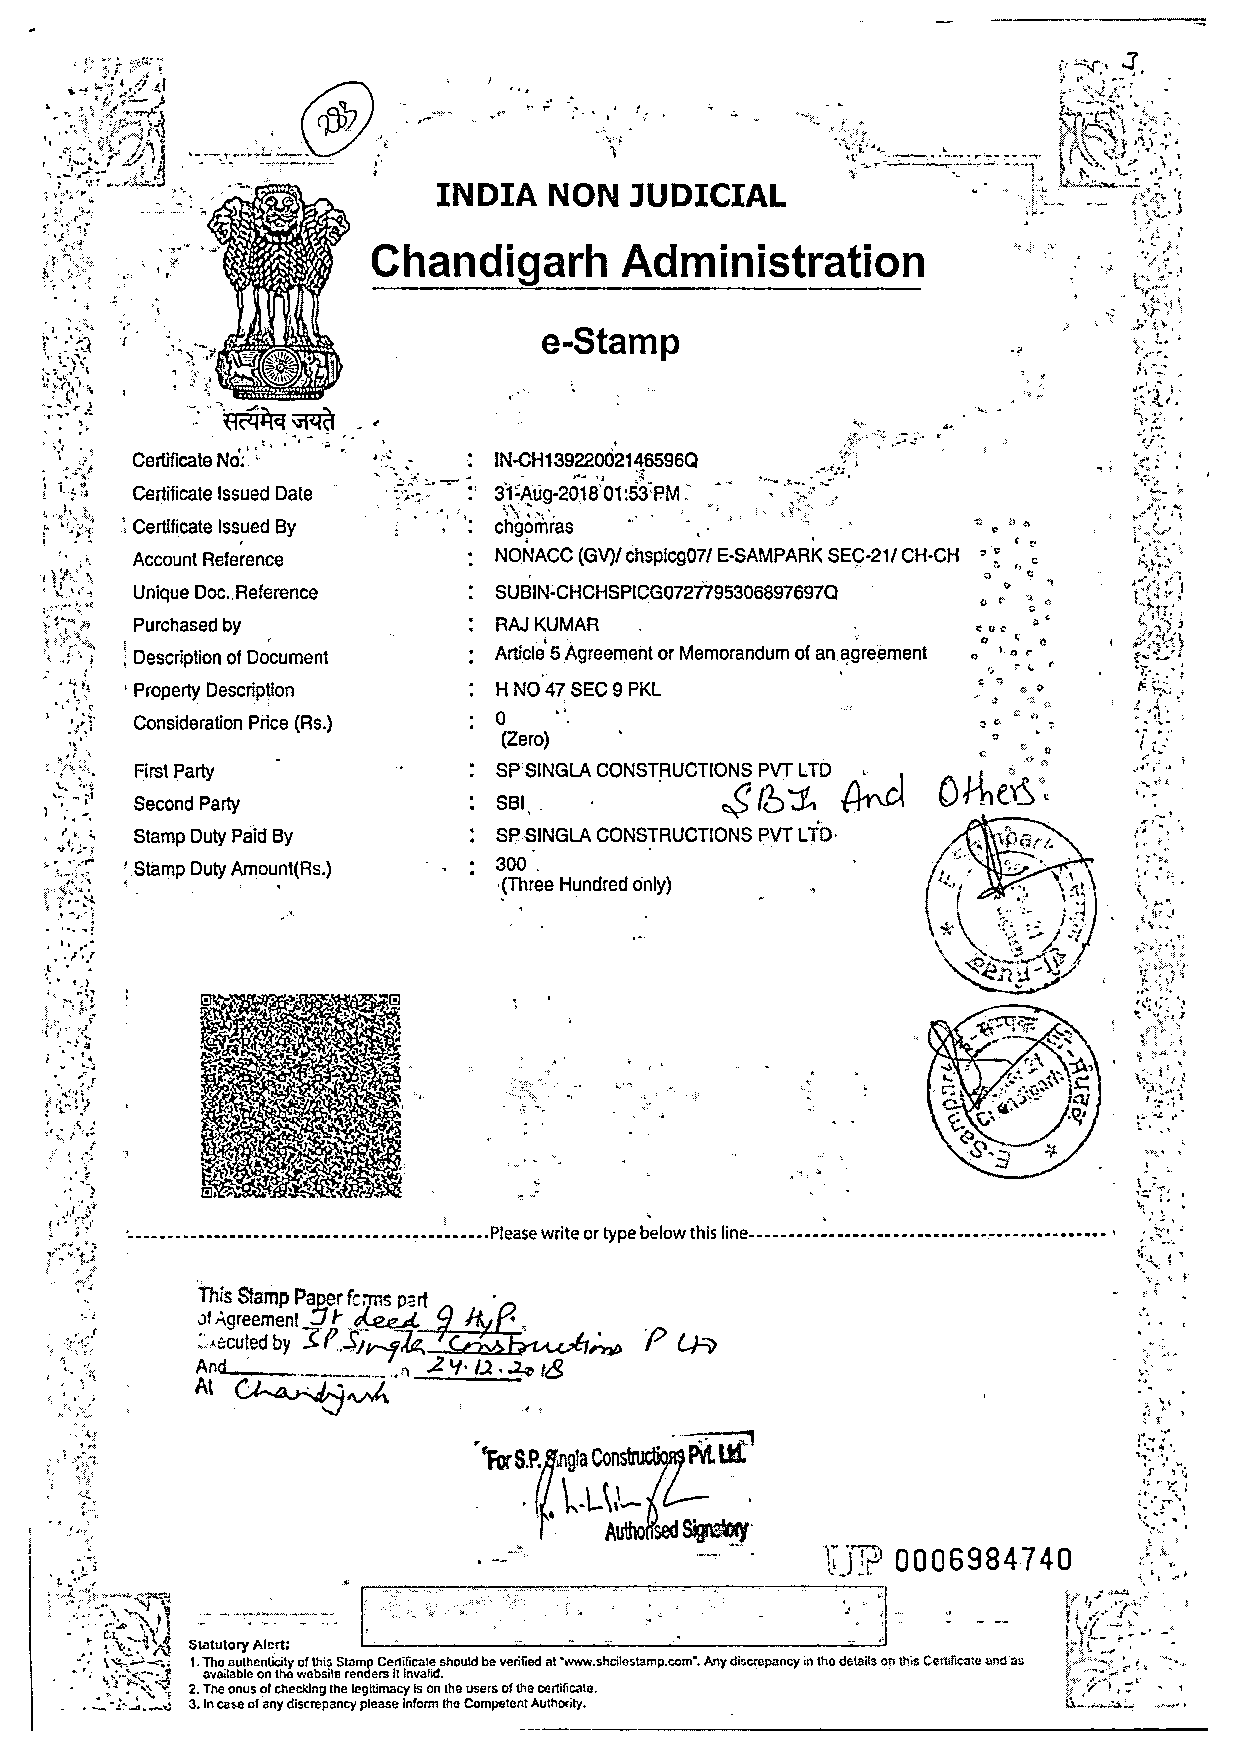 3
INDIA NON JUDICIAL
Chandigarh Administration
e-Stamp
सत्यमेव जयते
Certificate No. : IN-CH13922002146596Q
Certificate Issued Date : 31-Aug-2018 01:53 PM
Certificate Issued By : chgomras
Account Reference : NONACC (GV)/ chspicg07/ E-SAMPARK SEC-21/ CH-CH
Unique Doc. Reference : SUBIN-CHCHSPICG0727795306897697Q
Purchased by : RAJ KUMAR
Description of Document : Article 5 Agreement or Memorandum of an agreement
Property Description : H NO 47 SEC 9 PKL
Consideration Price (Rs.) : 0
(Zero)
First Party : SP SINGLA CONSTRUCTIONS PVT LTD
Second Party : SBI SBI And Others
Stamp Duty Paid By : SP SINGLA CONSTRUCTIONS PVT LTD
Stamp Duty Amount(Rs.) : 300
(Three Hundred only)
Please write or type below this line
This Stamp Paper forms part
of Agreement Jt deed of Hyp.
Executed by SP Singla Constructions P Ltd
And 24.12.2018
At Chandigarh
For S.P. Singla Constructions Pvt. Ltd.
Authorised Signatory
UP 0006984740
Statutory Alert:
1. The authenticity of this Stamp Certificate should be verified at "www.shcilestamp.com". Any discrepancy in the details on this Certificate and as
available on the website renders it invalid.
2. The onus of checking the legitimacy is on the users of the certificate.
3. In case of any discrepancy please inform the Competent Authority.